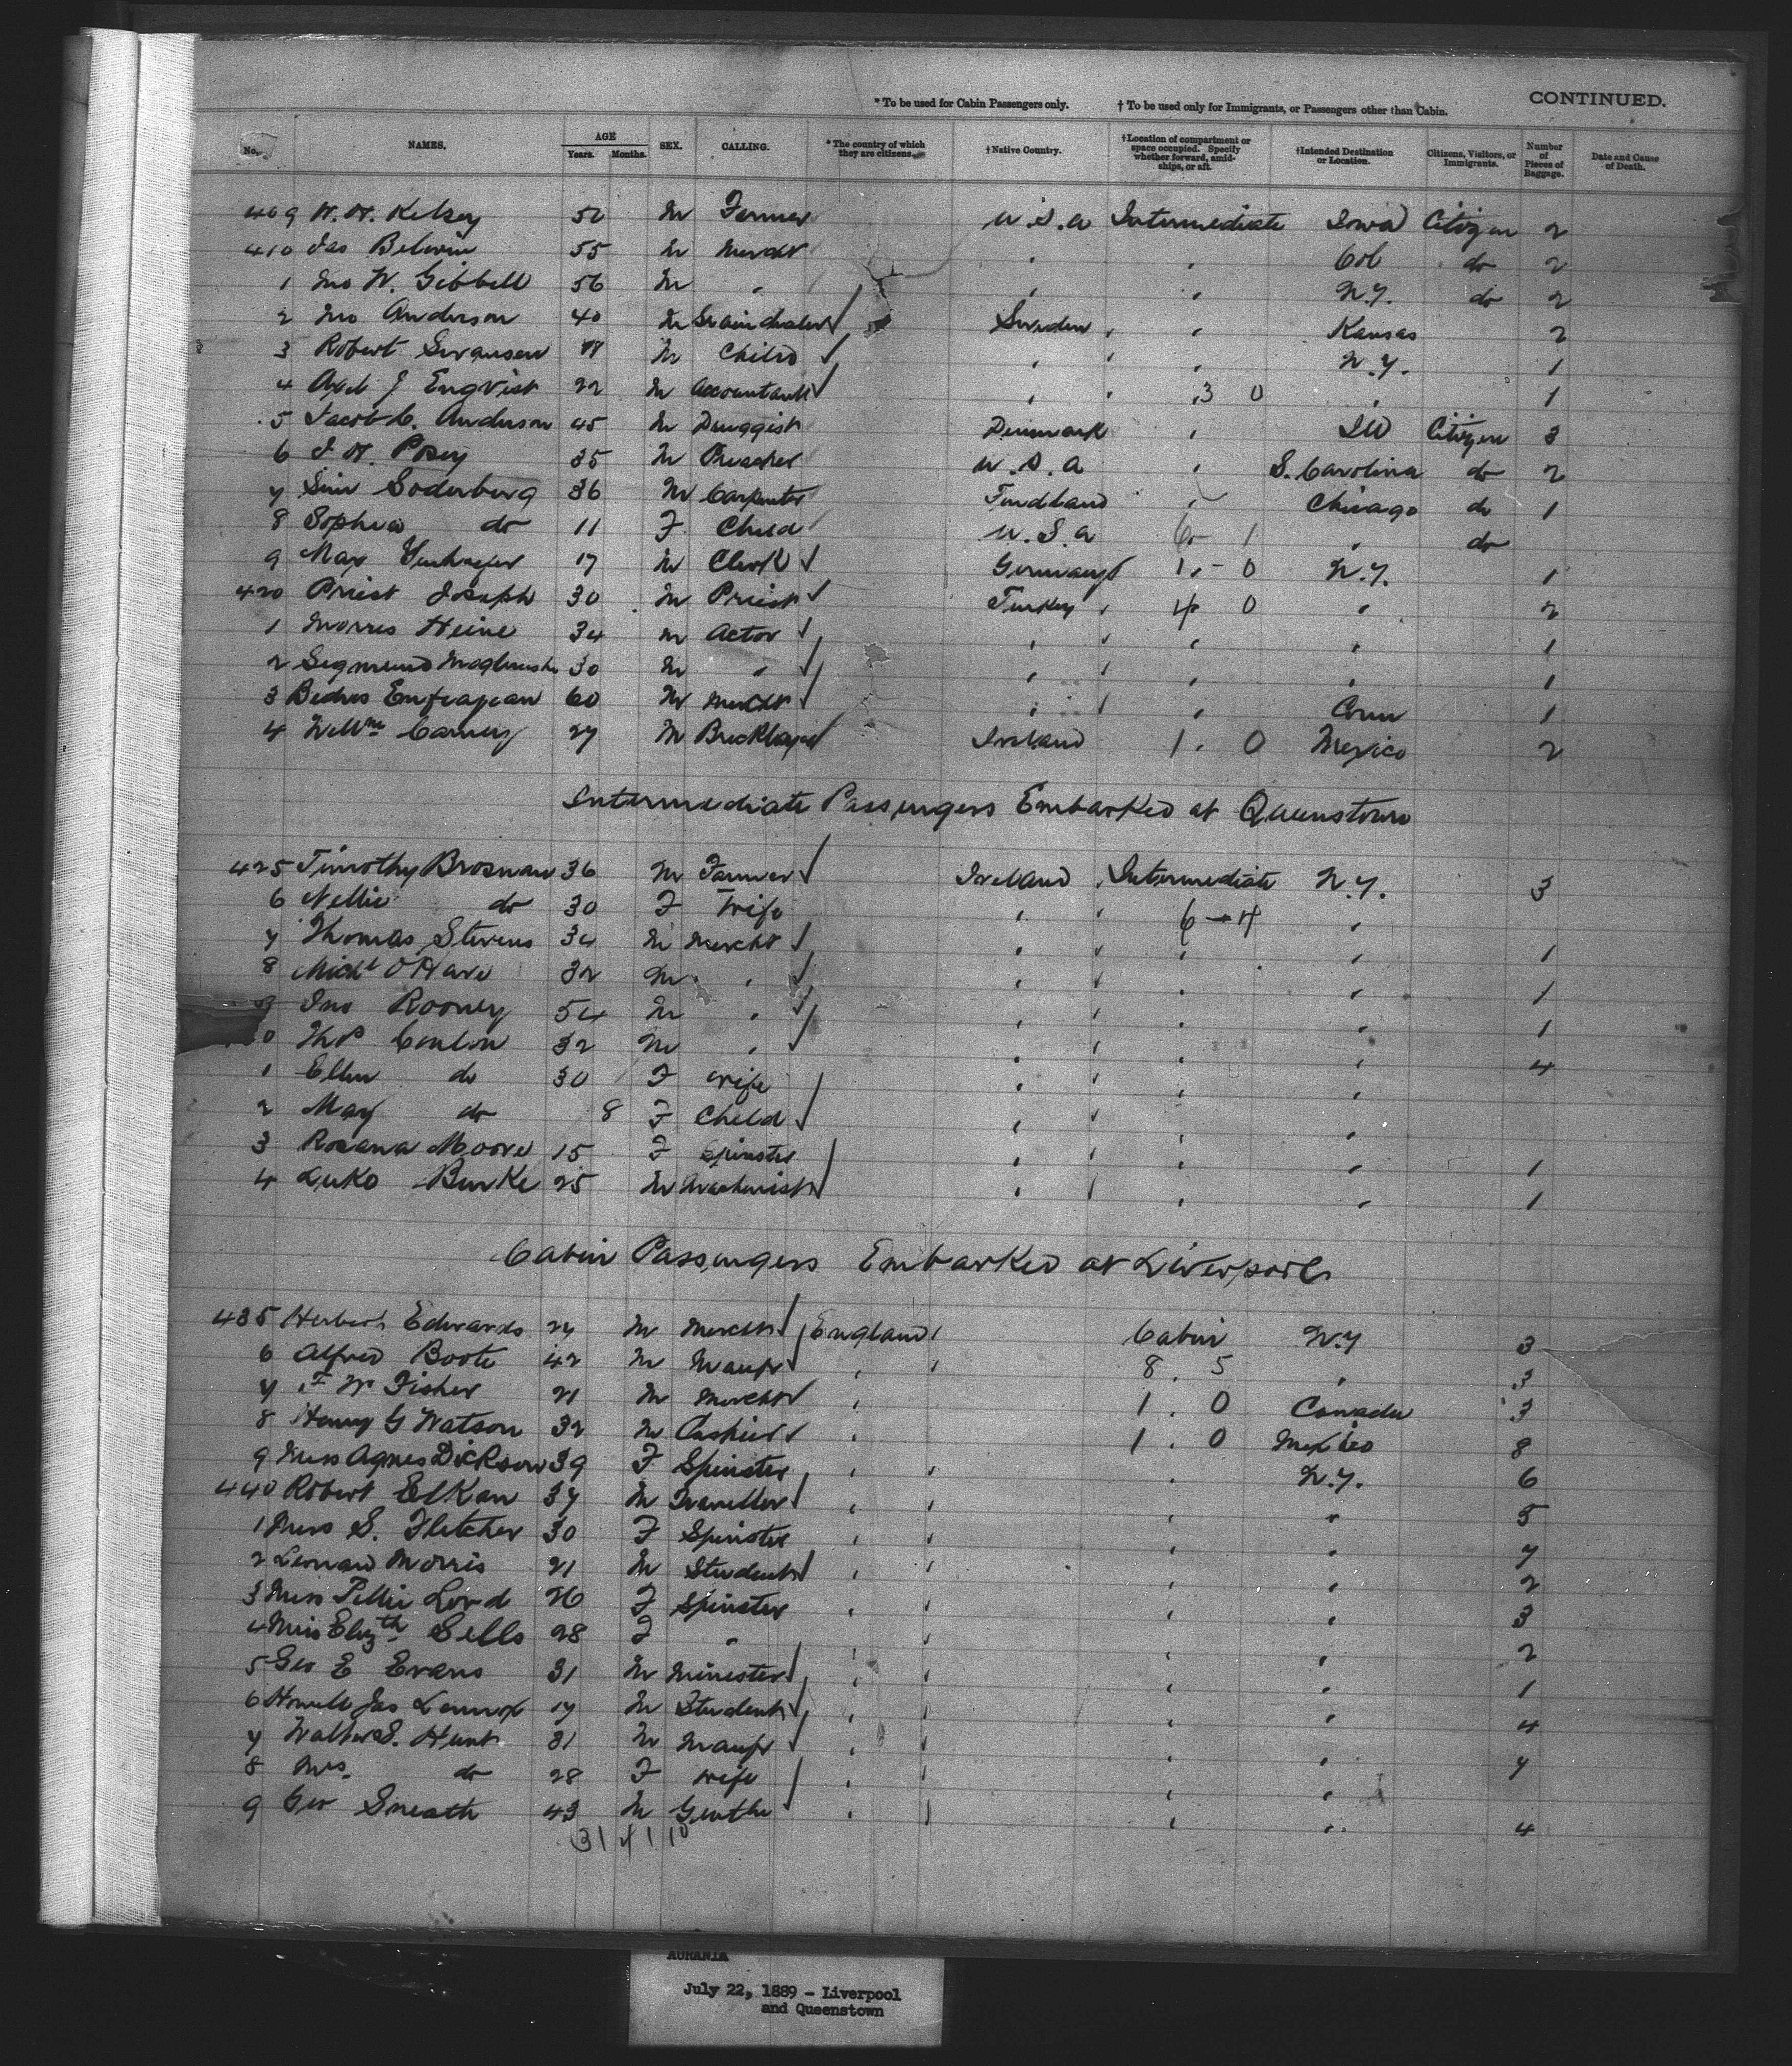 CONTINUED.
* To be used for Cabin Passengers only. † To be used only for Immigrants, or Passengers other than Cabin.
No. NAMES. AGE Years. Months. SEX. CALLING. * The country of which they are citizens. † Native Country. † Location of compartment or space occupied. Specify whether forward, amidships, or aft. † Intended Destination or Location. Citizens, Visitors, or Immigrants. Number of Pieces of Baggage. Date and Cause of Death.
409 W. H. Kelsey 52 M Farmer U.S.A Intermediate Iowa Citizen 2
410 Jas 55 M Mercht " " Col do 2
1 Jno W. Gibbell 56 M " " " N.Y. do 2
2 Jno Anderson 40 M Grain dealer Sweden " Kansas 2
3 Robert M Child " " N.Y. 1
4 Axel J Engvist 22 M Accountant " 3 0 " 1
5 Jacob C. Anderson 45 M Druggist Denmark " Ill Citizen 3
6 J. H. Posey 35 M Preacher U.S.A " S. Carolina do 2
7 Soderberg 36 M Carpenter " Chicago do 1
8 Sophia do 11 F Child U.S.A 6 - 1 " do
9 Max 17 M Clerk Germany 1 - 0 N.Y. 1
420 Priest Joseph 30 M Priest Turkey 4 0 " 2
1 Morris Heine 34 M Actor " " " 1
2 Segmund 30 M " " " " 1
3 Bedros 60 M Mercht " " Conn 1
4 Willm 27 M Bricklayer Ireland 1 . 0 Mexico 2
Intermediate Passengers Embarked at Queenstown
425 Timothy Brosnan 36 M Farmer Ireland Intermediate N.Y. 3
6 Nellie do 30 F Wife " 6 - 4 "
7 Thomas Stevens 34 M Mercht " " " 1
8 Michl O'Hare 32 M " " " " 1
9 Jno Rooney 54 M " " " " 1
0 Thos Conlon 32 M " " " " 4
1 Ellen do 30 F Wife " " "
2 May do 8 F Child " " "
3 Rosana Moore 15 F Spinster " " " 1
4 Luke Burke 25 M Machinist " " " 1
Cabin Passengers Embarked at Liverpool
435 Herbert Edwards 27 M Mercht England Cabin N.Y 3
6 Alfred Boote 42 M Manfr " 8 . 5 " 3
7 F W Fisher 21 M Mercht " 1 . 0 Canada 3
8 Henry G Watson 32 M Cashier " 1 . 0 Mexico 8
9 Miss Agnes Dickson 39 F Spinster " " N.Y. 6
440 Robert Elkan 37 M Traveller " " " 5
1 Miss S. Fletcher 30 F Spinster " " " 7
2 Leonard Morris 21 M Student " " " 2
3 Miss Lord 26 F Spinster " " " 3
4 Miss Elizth Sells 28 F " " " " 2
5 Geo E Evans 31 M Minister " " " 1
6 Howell Jas Lennox 17 M Student " " " 4
7 Walter S. Hunt 31 M Manfr " " " 7
8 Mrs. do 28 F Wife " " "
9 Geo Sneath 43 M Gentln " " " 4
AURANIA
July 22, 1889 - Liverpool
and Queenstown